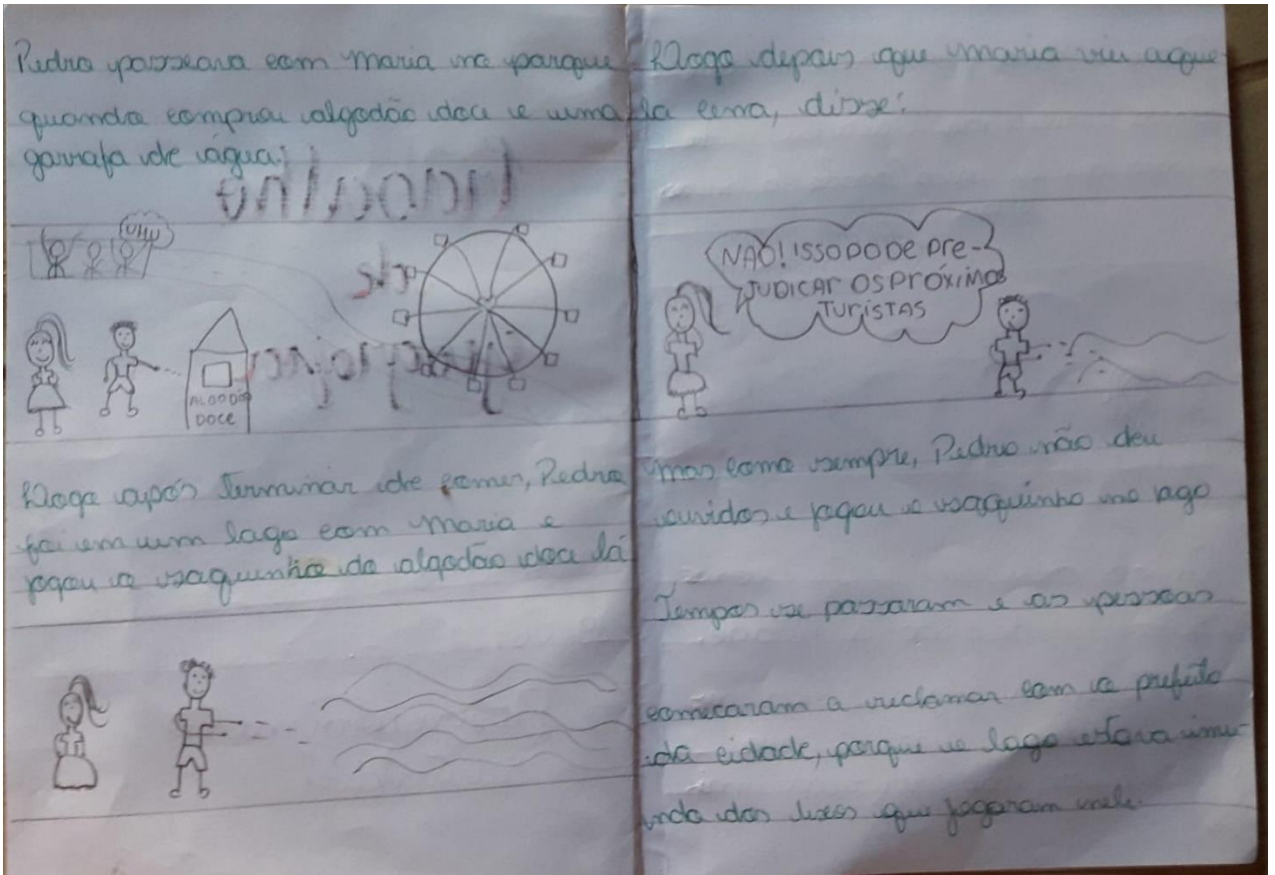 Pedro passeava com Maria no parque
quando comprou algodão doce e uma
garrafa de água.
UHU
ALGODÃO
DOCE
Logo após terminar de comer, Pedro
foi em um lago com Maria e
jogou o saquinho do algodão doce lá
Logo depois que Maria viu aque-
la cena, disse:
NÃO! ISSO PODE PRE-
JUDICAR OS PRÓXIMOS
TURISTAS
mas como sempre, Pedro não deu
ouvidos e jogou o saquinho no lago
Tempos se passaram e as pessoas
começaram a reclamar com o prefeito
da cidade, porque o lago estava imu-
ndo dos lixos que jogaram nele.